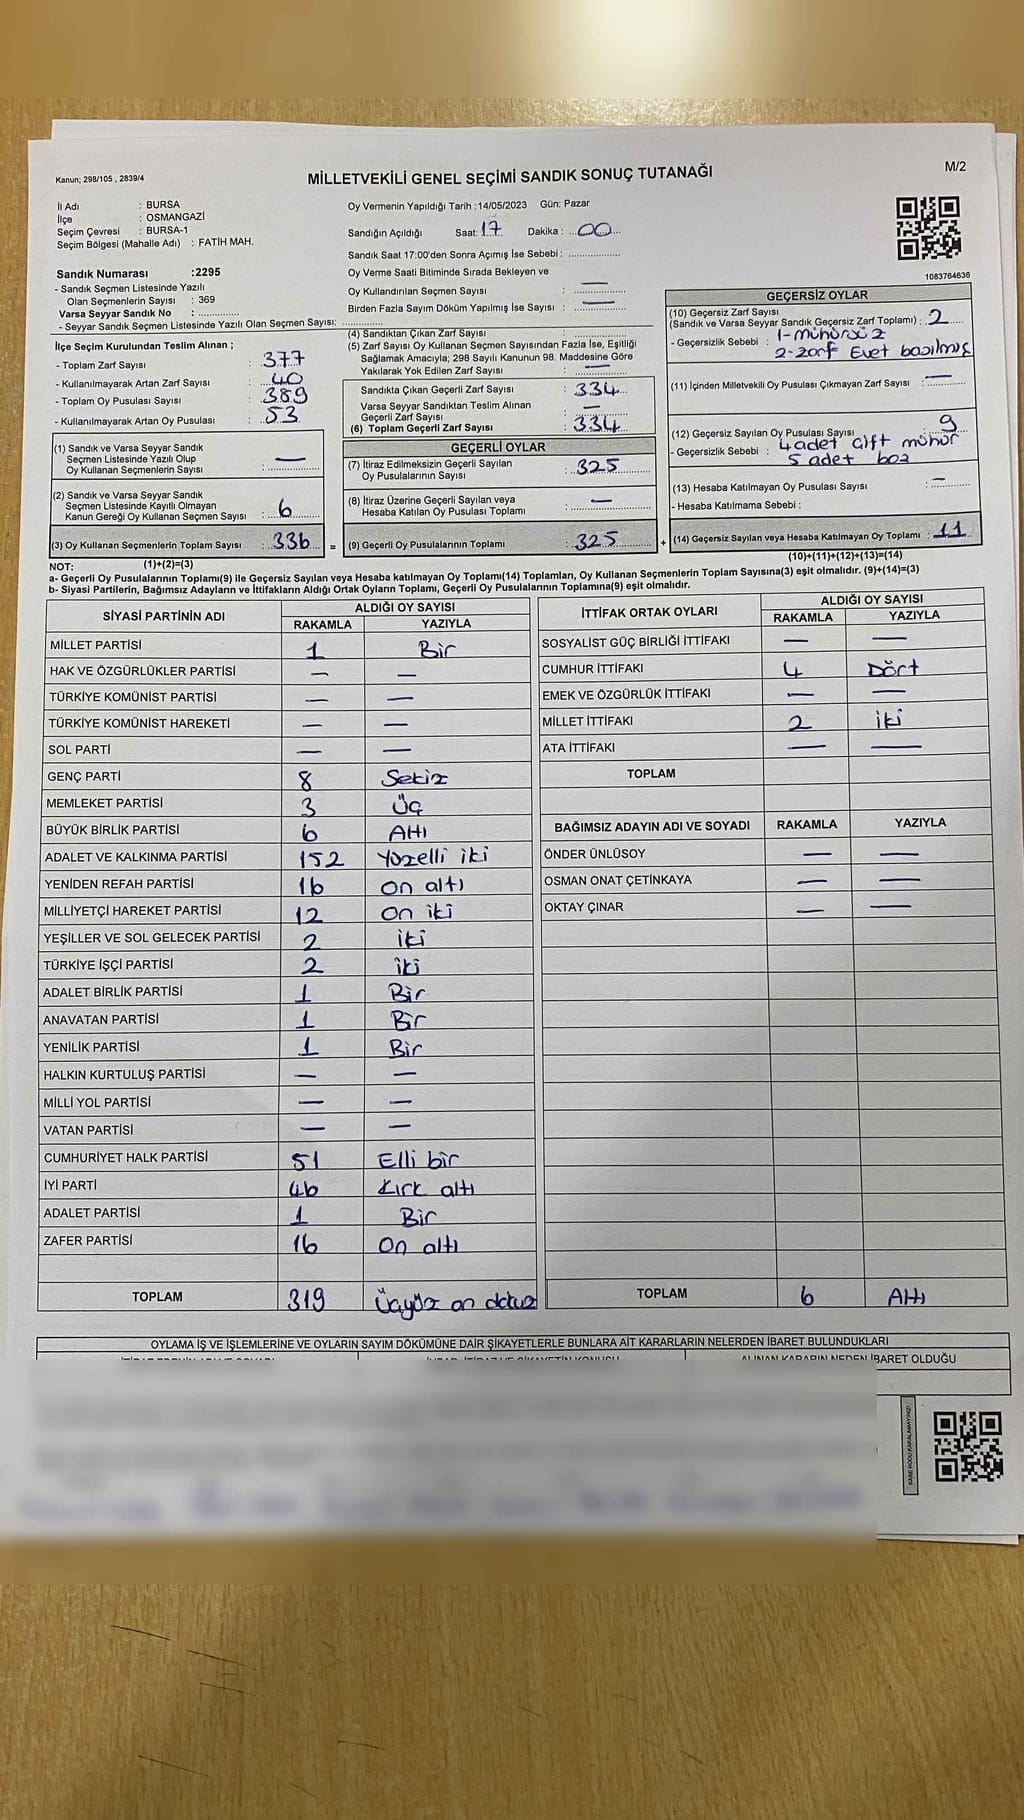 Kanun; 298/105 , 2839/4
MİLLETVEKİLİ GENEL SEÇİMİ SANDIK SONUÇ TUTANAĞI
M/2
İl Adı : BURSA
İlçe : OSMANGAZİ
Seçim Çevresi : BURSA-1
Seçim Bölgesi (Mahalle Adı) : FATİH MAH.
Sandık Numarası :2295
- Sandık Seçmen Listesinde Yazılı
Olan Seçmenlerin Sayısı : 369
Varsa Seyyar Sandık No : ............
- Seyyar Sandık Seçmen Listesinde Yazılı Olan Seçmen Sayısı: ............
İlçe Seçim Kurulundan Teslim Alınan ;
- Toplam Zarf Sayısı : 377
- Kullanılmayarak Artan Zarf Sayısı : 40
- Toplam Oy Pusulası Sayısı : 389
- Kullanılmayarak Artan Oy Pusulası : 53
(1) Sandık ve Varsa Seyyar Sandık
Seçmen Listesinde Yazılı Olup
Oy Kullanan Seçmenlerin Sayısı : —
(2) Sandık ve Varsa Seyyar Sandık
Seçmen Listesinde Kayıtlı Olmayan
Kanun Gereği Oy Kullanan Seçmen Sayısı : 6
(3) Oy Kullanan Seçmenlerin Toplam Sayısı : 336 =
(1)+(2)=(3)
Oy Vermenin Yapıldığı Tarih :14/05/2023 Gün: Pazar
Sandığın Açıldığı Saat: 17 Dakika : 00
Sandık Saat 17:00'den Sonra Açımış İse Sebebi : ............
Oy Verme Saati Bitiminde Sırada Bekleyen ve
Oy Kullandırılan Seçmen Sayısı : —
Birden Fazla Sayım Döküm Yapılmış İse Sayısı : —
(4) Sandıktan Çıkan Zarf Sayısı : ............
(5) Zarf Sayısı Oy Kullanan Seçmen Sayısından Fazla İse, Eşitliği
Sağlamak Amacıyla; 298 Sayılı Kanunun 98. Maddesine Göre
Yakılarak Yok Edilen Zarf Sayısı : —
Sandıkta Çıkan Geçerli Zarf Sayısı : 334
Varsa Seyyar Sandıktan Teslim Alınan
Geçerli Zarf Sayısı : —
(6) Toplam Geçerli Zarf Sayısı : 334
GEÇERLİ OYLAR
(7) İtiraz Edilmeksizin Geçerli Sayılan
Oy Pusulalarının Sayısı : 325
(8) İtiraz Üzerine Geçerli Sayılan veya
Hesaba Katılan Oy Pusulası Toplamı : —
(9) Geçerli Oy Pusulalarının Toplamı : 325 +
1083764636
GEÇERSİZ OYLAR
(10) Geçersiz Zarf Sayısı
(Sandık ve Varsa Seyyar Sandık Geçersiz Zarf Toplamı) : 2
- Geçersizlik Sebebi : 1-mühürsüz
2-zarf Evet basılmış
(11) İçinden Milletvekili Oy Pusulası Çıkmayan Zarf Sayısı : —
(12) Geçersiz Sayılan Oy Pusulası Sayısı : 9
- Geçersizlik Sebebi : 4 adet çift mühür
5 adet boş
(13) Hesaba Katılmayan Oy Pusulası Sayısı : —
- Hesaba Katılmama Sebebi :
(14) Geçersiz Sayılan veya Hesaba Katılmayan Oy Toplamı : 11
(10)+(11)+(12)+(13)=(14)
NOT:
a- Geçerli Oy Pusulalarının Toplamı(9) ile Geçersiz Sayılan veya Hesaba katılmayan Oy Toplamı(14) Toplamları, Oy Kullanan Seçmenlerin Toplam Sayısına(3) eşit olmalıdır. (9)+(14)=(3)
b- Siyasi Partilerin, Bağımsız Adayların ve İttifakların Aldığı Ortak Oyların Toplamı, Geçerli Oy Pusulalarının Toplamına(9) eşit olmalıdır.
SİYASİ PARTİNİN ADI ALDIĞI OY SAYISI
RAKAMLA YAZIYLA
MİLLET PARTİSİ 1 Bir
HAK VE ÖZGÜRLÜKLER PARTİSİ — —
TÜRKİYE KOMÜNİST PARTİSİ — —
TÜRKİYE KOMÜNİST HAREKETİ — —
SOL PARTİ — —
GENÇ PARTİ 8 Sekiz
MEMLEKET PARTİSİ 3 Üç
BÜYÜK BİRLİK PARTİSİ 6 Altı
ADALET VE KALKINMA PARTİSİ 152 Yüzelli iki
YENİDEN REFAH PARTİSİ 16 On altı
MİLLİYETÇİ HAREKET PARTİSİ 12 On iki
YEŞİLLER VE SOL GELECEK PARTİSİ 2 iki
TÜRKİYE İŞÇİ PARTİSİ 2 iki
ADALET BİRLİK PARTİSİ 1 Bir
ANAVATAN PARTİSİ 1 Bir
YENİLİK PARTİSİ 1 Bir
HALKIN KURTULUŞ PARTİSİ — —
MİLLİ YOL PARTİSİ — —
VATAN PARTİSİ — —
CUMHURİYET HALK PARTİSİ 51 Elli bir
İYİ PARTİ 46 Kırk altı
ADALET PARTİSİ 1 Bir
ZAFER PARTİSİ 16 On altı
TOPLAM 319 Üçyüz on dokuz
İTTİFAK ORTAK OYLARI ALDIĞI OY SAYISI
RAKAMLA YAZIYLA
SOSYALİST GÜÇ BİRLİĞİ İTTİFAKI — —
CUMHUR İTTİFAKI 4 Dört
EMEK VE ÖZGÜRLÜK İTTİFAKI — —
MİLLET İTTİFAKI 2 iki
ATA İTTİFAKI — —
TOPLAM
BAĞIMSIZ ADAYIN ADI VE SOYADI RAKAMLA YAZIYLA
ÖNDER ÜNLÜSOY — —
OSMAN ONAT ÇETİNKAYA — —
OKTAY ÇINAR — —
TOPLAM 6 Altı
OYLAMA İŞ VE İŞLEMLERİNE VE OYLARIN SAYIM DÖKÜMÜNE DAİR ŞİKAYETLERLE BUNLARA AİT KARARLARIN NELERDEN İBARET BULUNDUKLARI
ALINAN KARARIN NEDEN İBARET OLDUĞU
KARE KODU KARALAMAYINIZ!